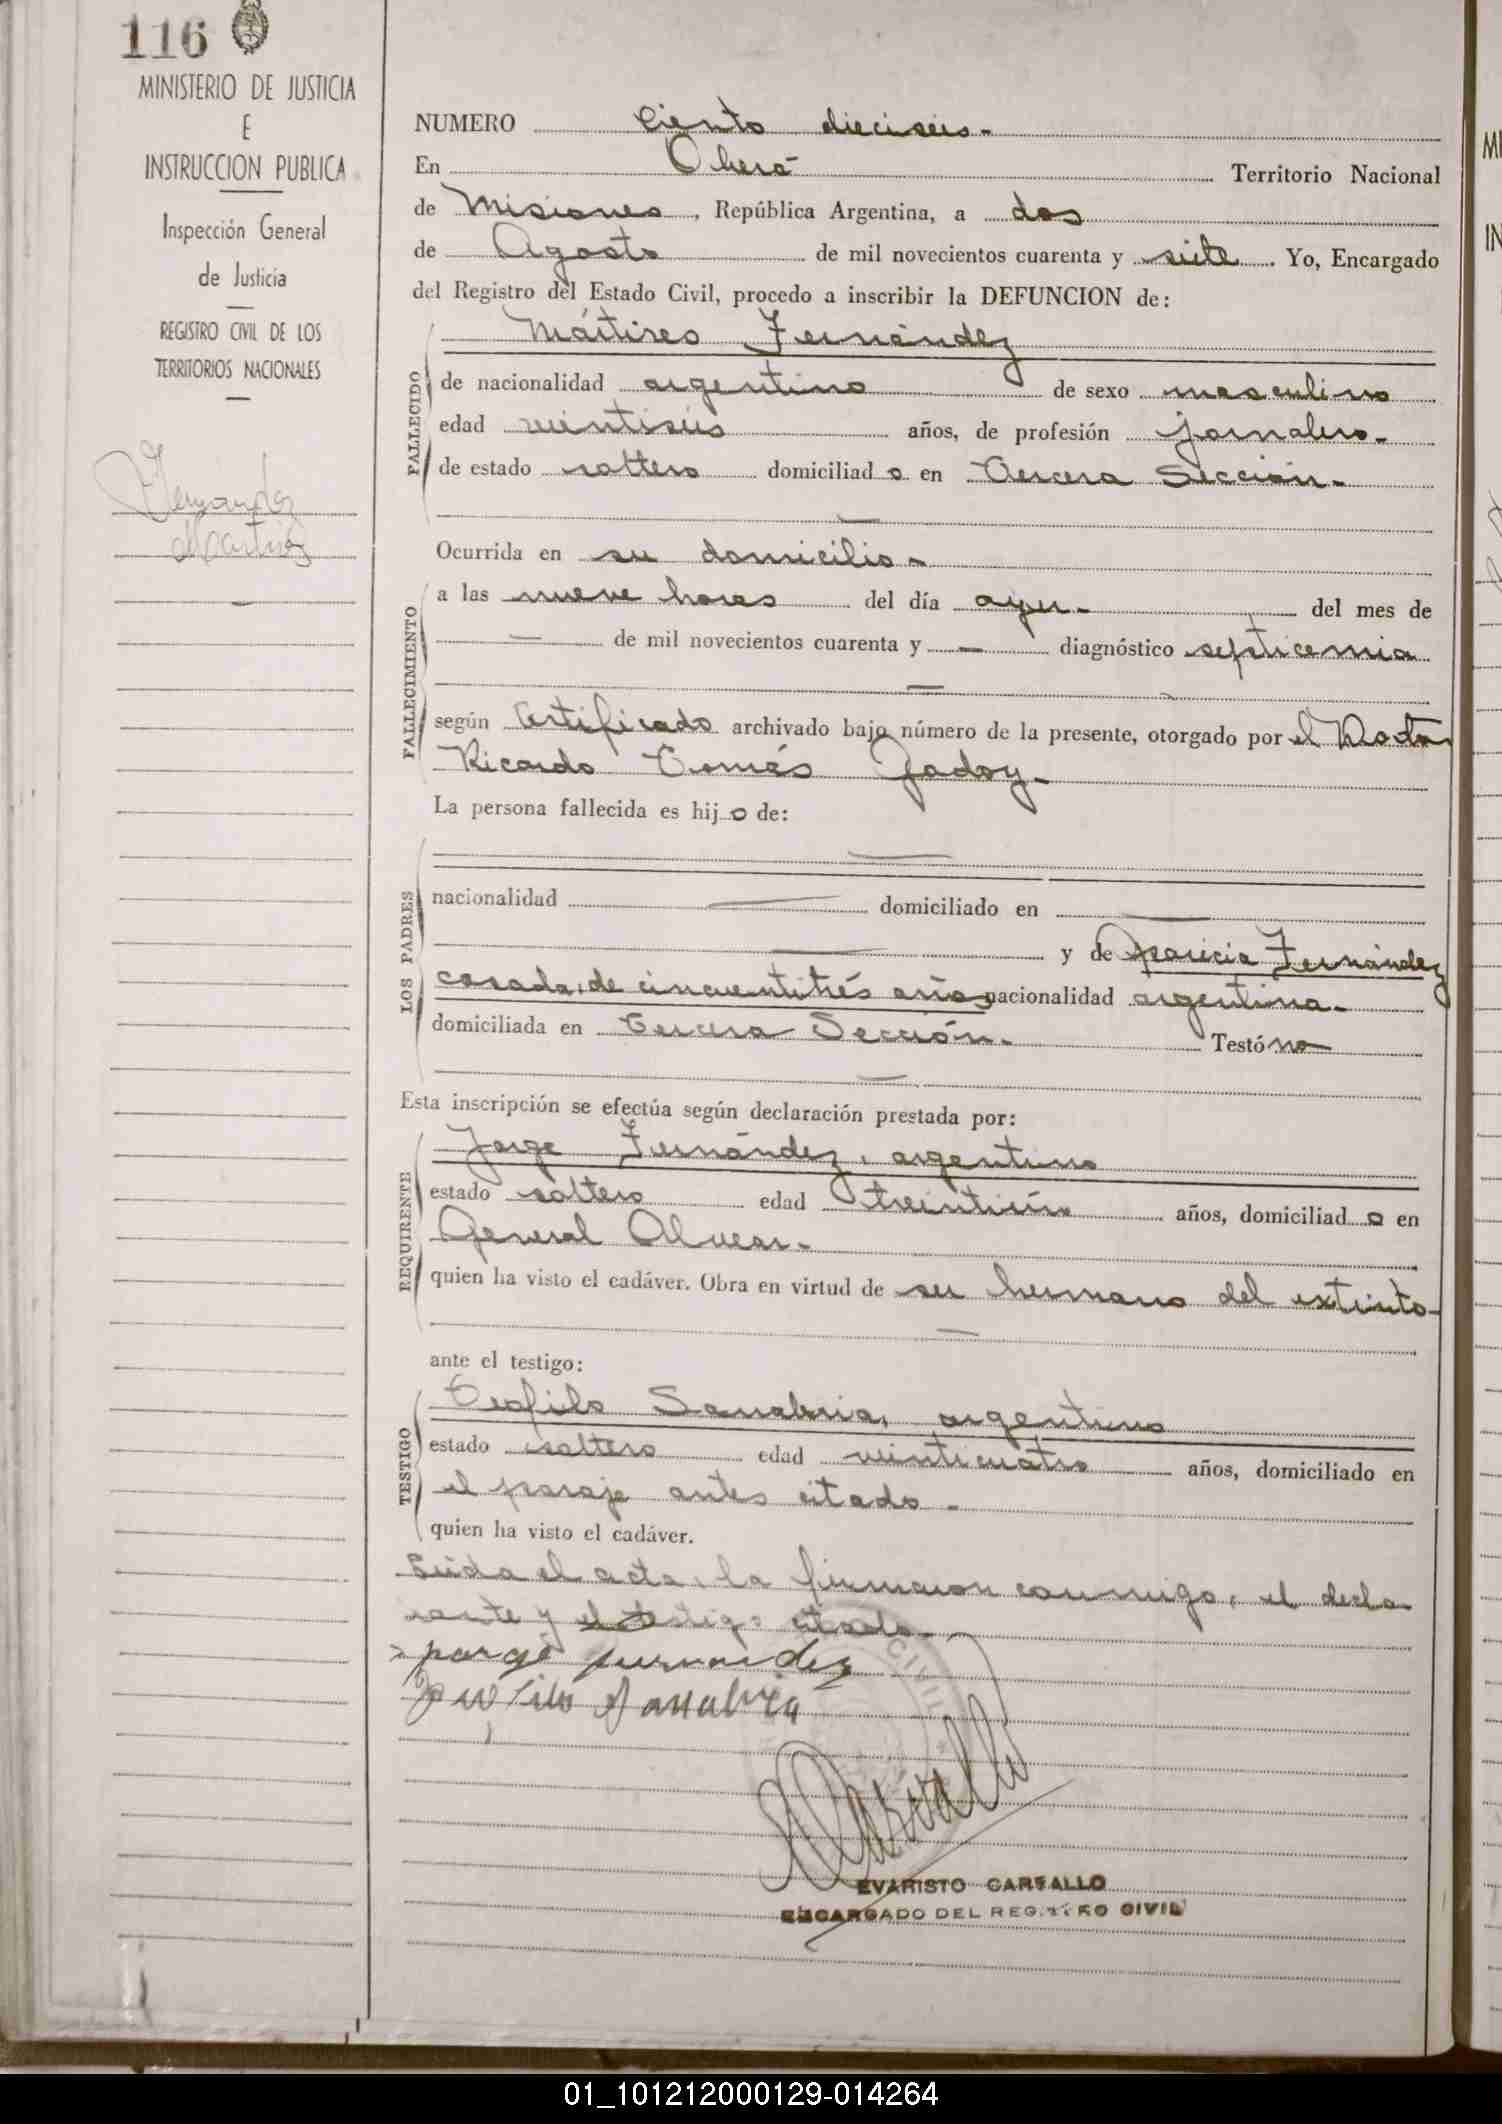 116
MINISTERIO DE JUSTICIA
E
INSTRUCCION PUBLICA
Inspección General
de Justicia
REGISTRO CIVIL DE LOS
TERRITORIOS NACIONALES
Fernandez
NUMERO Ciento dieciséis.-
En Oberá Territorio Nacional
de Misiones, República Argentina, a dos
de Agosto de mil novecientos cuarenta y siete. Yo, Encargado
del Registro del Estado Civil, procedo a inscribir la DEFUNCION de:
Mártires Fernández
FALLECIDO
de nacionalidad argentino de sexo masculino
edad veintiséis años, de profesión jornalero.-
de estado soltero domiciliado en Tercera Sección.-
Ocurrida en su domicilio.-
FALLECIMIENTO
a las nueve horas del día ayer.- del mes de
— de mil novecientos cuarenta y — diagnóstico septicemia
según Certificado archivado bajo número de la presente, otorgado por el Doctor
Ricardo Tomás Godoy.-
La persona fallecida es hijo de:
LOS PADRES
nacionalidad — domiciliado en —
— y de Aparicia Fernández
casada, de cincuentitrés años nacionalidad argentina.-
domiciliada en Tercera Sección.- Testó no
Esta inscripción se efectúa según declaración prestada por:
REQUIRENTE
Jorge Fernández, argentino
estado soltero edad treintiún años, domiciliado en
General Alvear.-
quien ha visto el cadáver. Obra en virtud de ser hermano del extinto-
ante el testigo:
TESTIGO
Teofilo Sanabria, argentino
estado soltero edad veinticuatro años, domiciliado en
el paraje antes citado.-
quien ha visto el cadáver.
Leída el acta, la firmaron conmigo, el decla
rante y el testigo citado.-
Jorge fernandez
Sanabria
CIVIL
Carvallo
EVARISTO CARVALLO
ENCARGADO DEL REGISTRO CIVIL
01_101212000129-014264